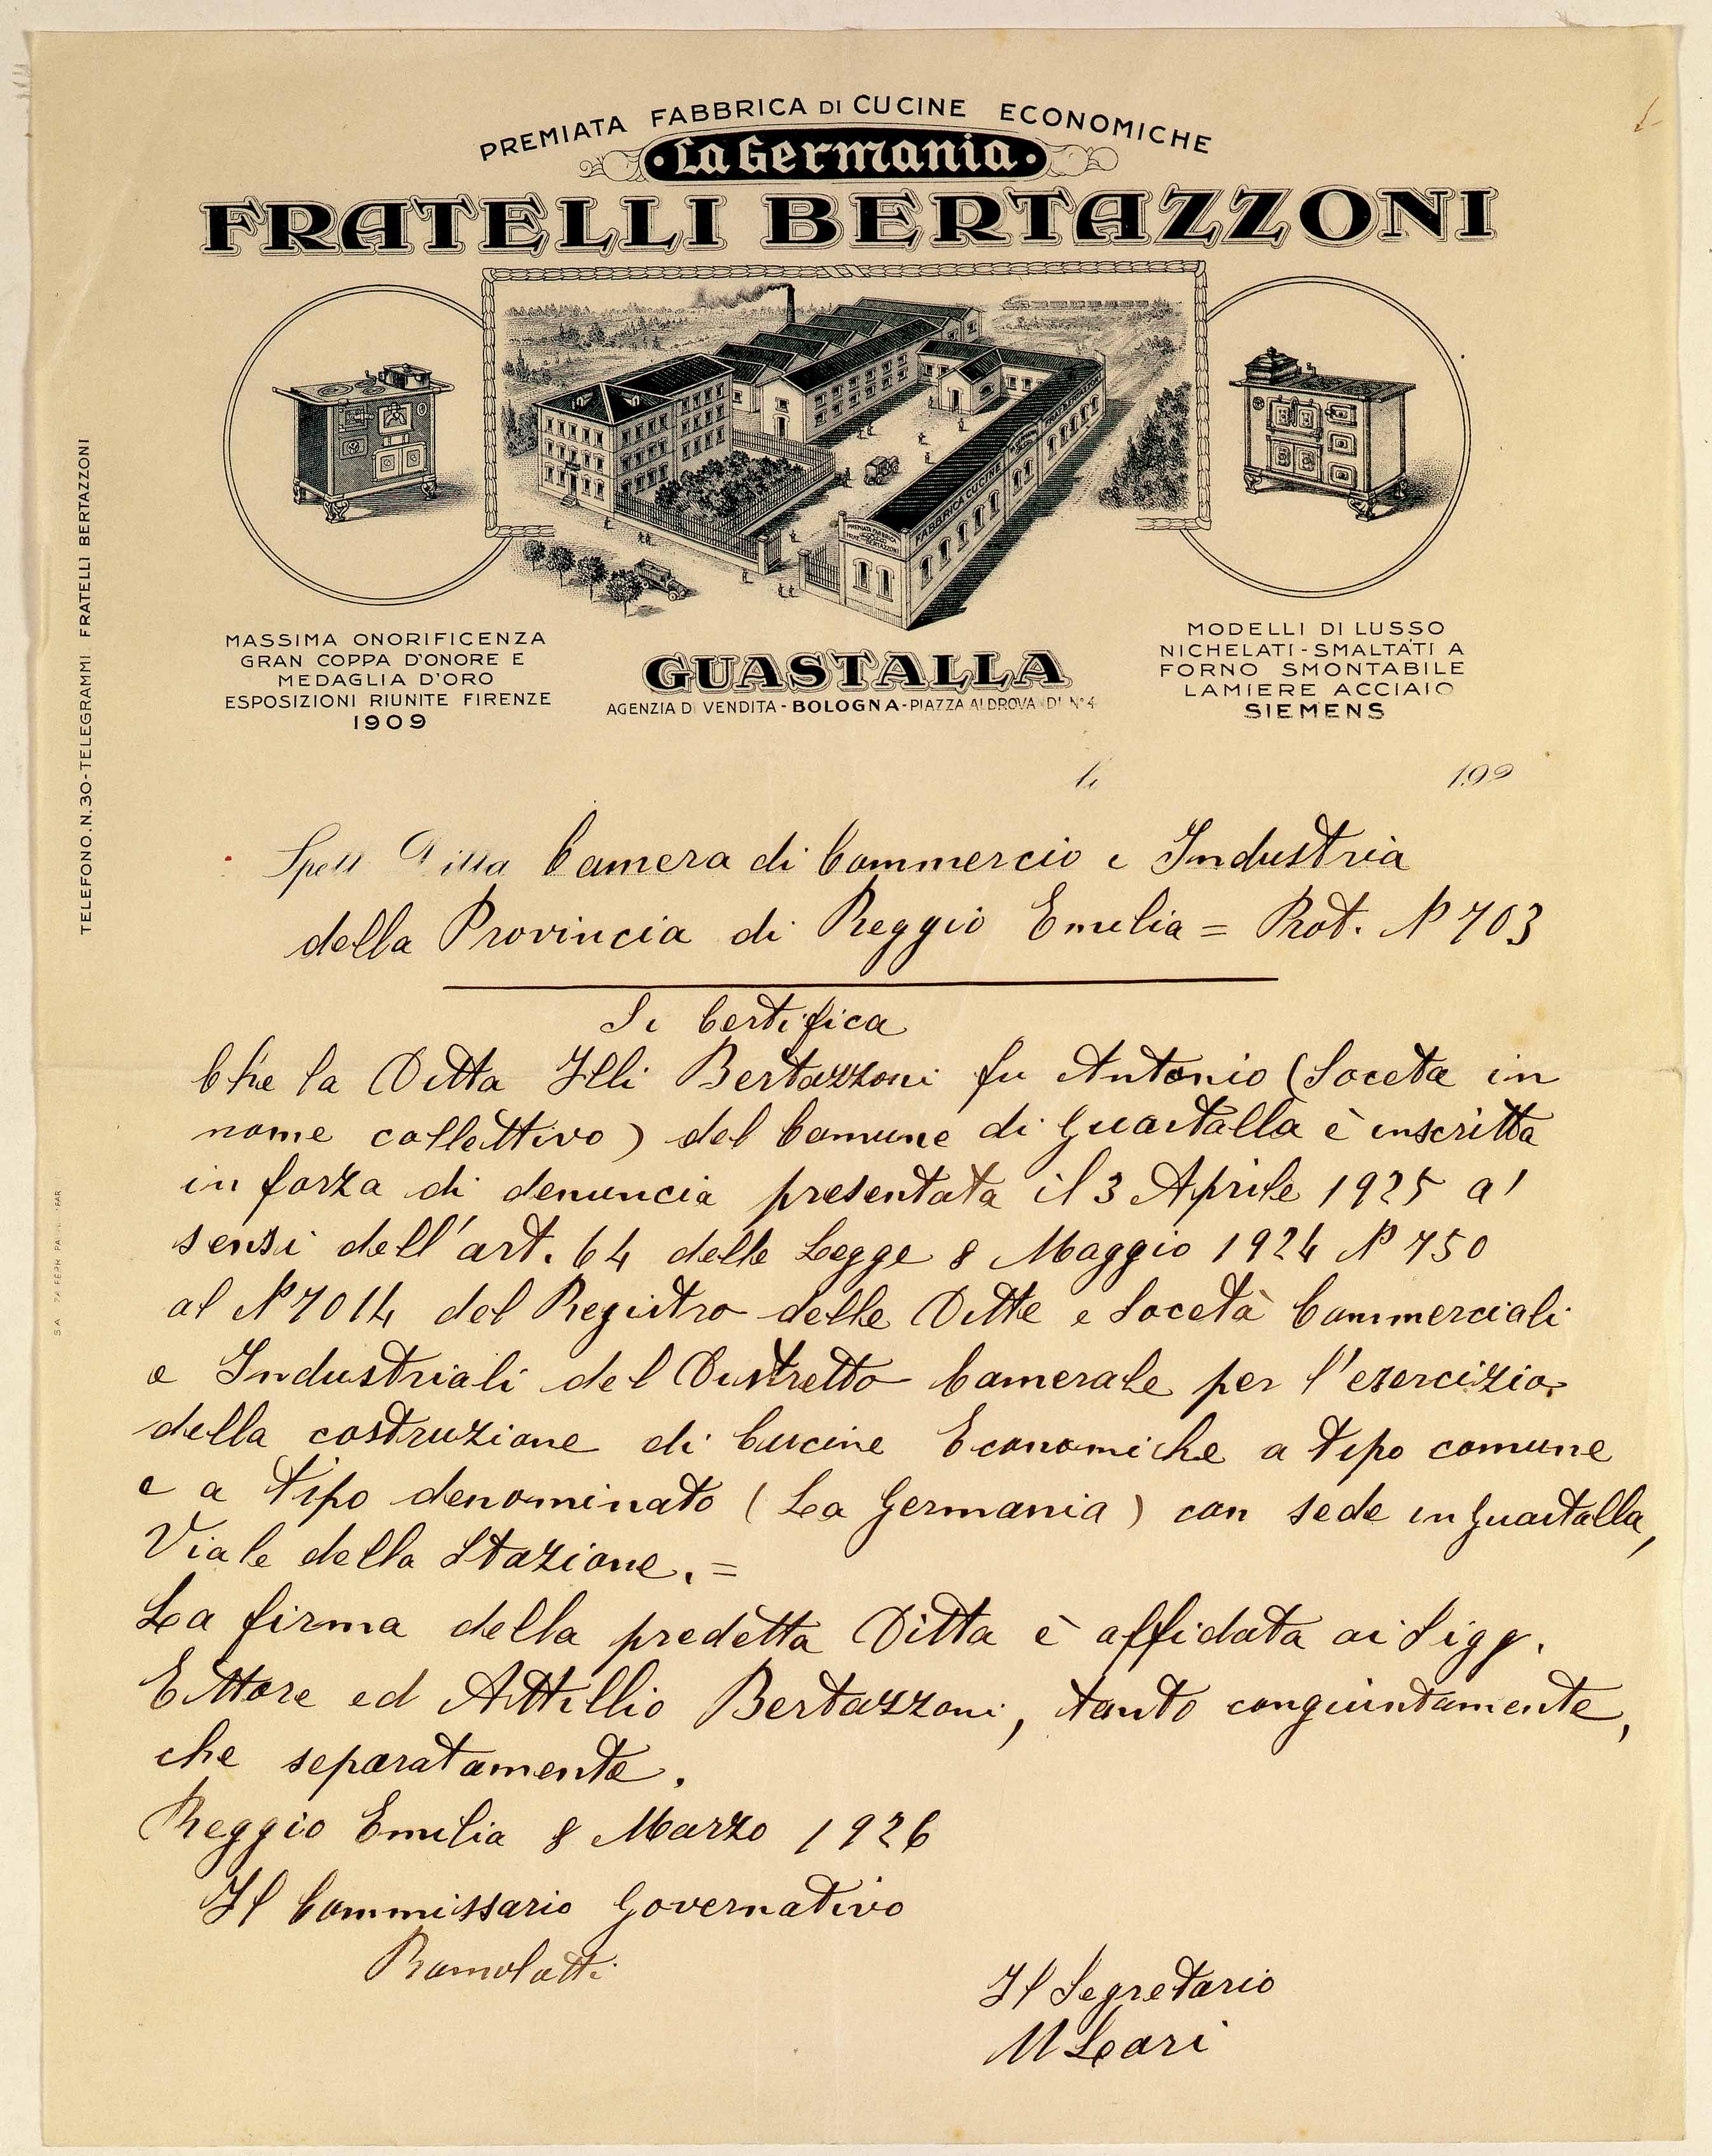 PREMIATA FABBRICA DI CUCINE ECONOMICHE
La Germania
FRATELLI BERTAZZONI
PREMIATA FABBRICA
BERTAZZONI
FABBRICA CUCINE
MASSIMA ONORIFICENZA
GRAN COPPA D'ONORE E
MEDAGLIA D'ORO
ESPOSIZIONI RIUNITE FIRENZE
1909
GUASTALLA
AGENZIA DI VENDITA - BOLOGNA - PIAZZA ALDROVANDI N° 4
MODELLI DI LUSSO
NICHELATI - SMALTATI A
FORNO SMONTABILE
LAMIERE ACCIAIO
SIEMENS
TELEFONO. N. 30 - TELEGRAMMI FRATELLI BERTAZZONI
li 192
Spett Ditta Camera di Commercio e Industria
della Provincia di Reggio Emilia = Prot. N 703
Si Certifica
Che la Ditta Flli Bertazzoni fu Antonio (Soceta in
nome collettivo) del Comune di Guastalla è inscritta
in forza di denuncia presentata il 3 Aprile 1925 a'
sensi dell'art. 64 delle Legge 8 Maggio 1924 N 750
al N 7014 del Registro delle Ditte e Socetà Commerciali
e Industriali del Distretto Camerale per l'esercizio
della costruzione di Cucine Economiche a tipo comune
e a tipo denominato (La Germania) con sede in Guastalla,
Viale della Stazione. =
La firma della predetta Ditta è affidata ai Sigg.
Ettore ed Attillio Bertazzoni, tanto congiuntamente,
che separatamente.
Reggio Emilia 8 Marzo 1926
Il Commissario Governativo
Ramolatti
Il Segretario
M Leari